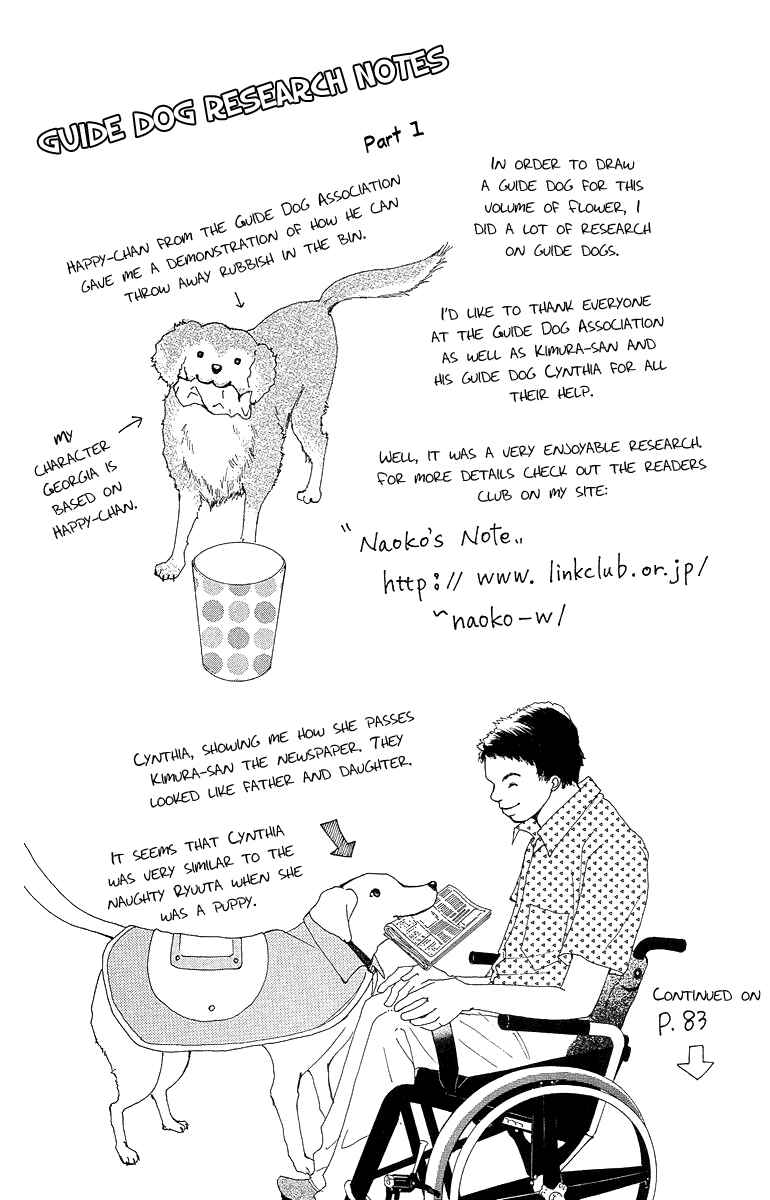 GUIDE DOG RESEARCH NOTES
Part 1
IN ORDER TO DRAW
A GUIDE DOG FOR THIS
VOLUME OF FLOWER, I
DID A LOT OF RESEARCH
ON GUIDE DOGS.
HAPPY-CHAN FROM THE GUIDE DOG ASSOCIATION
GAVE ME A DEMONSTRATION OF HOW HE CAN
THROW AWAY RUBBISH IN THE BIN.
I'D LIKE TO THANK EVERYONE
AT THE GUIDE DOG ASSOCIATION
AS WELL AS KIMURA-SAN AND
HIS GUIDE DOG CYNTHIA FOR ALL
THEIR HELP.
MY
CHARACTER
GEORGIA IS
BASED ON
HAPPY-CHAN.
WELL, IT WAS A VERY ENJOYABLE RESEARCH.
FOR MORE DETAILS CHECK OUT THE READERS
CLUB ON MY SITE:
"Naoko's Note"
http://www.linkclub.or.jp/
~naoko-w/
CYNTHIA, SHOWING ME HOW SHE PASSES
KIMURA-SAN THE NEWSPAPER. THEY
LOOKED LIKE FATHER AND DAUGHTER.
IT SEEMS THAT CYNTHIA
WAS VERY SIMILAR TO THE
NAUGHTY RYUUTA WHEN SHE
WAS A PUPPY.
CONTINUED ON
P. 83